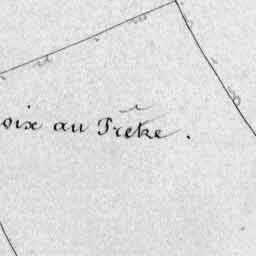 oix au Prêtre.